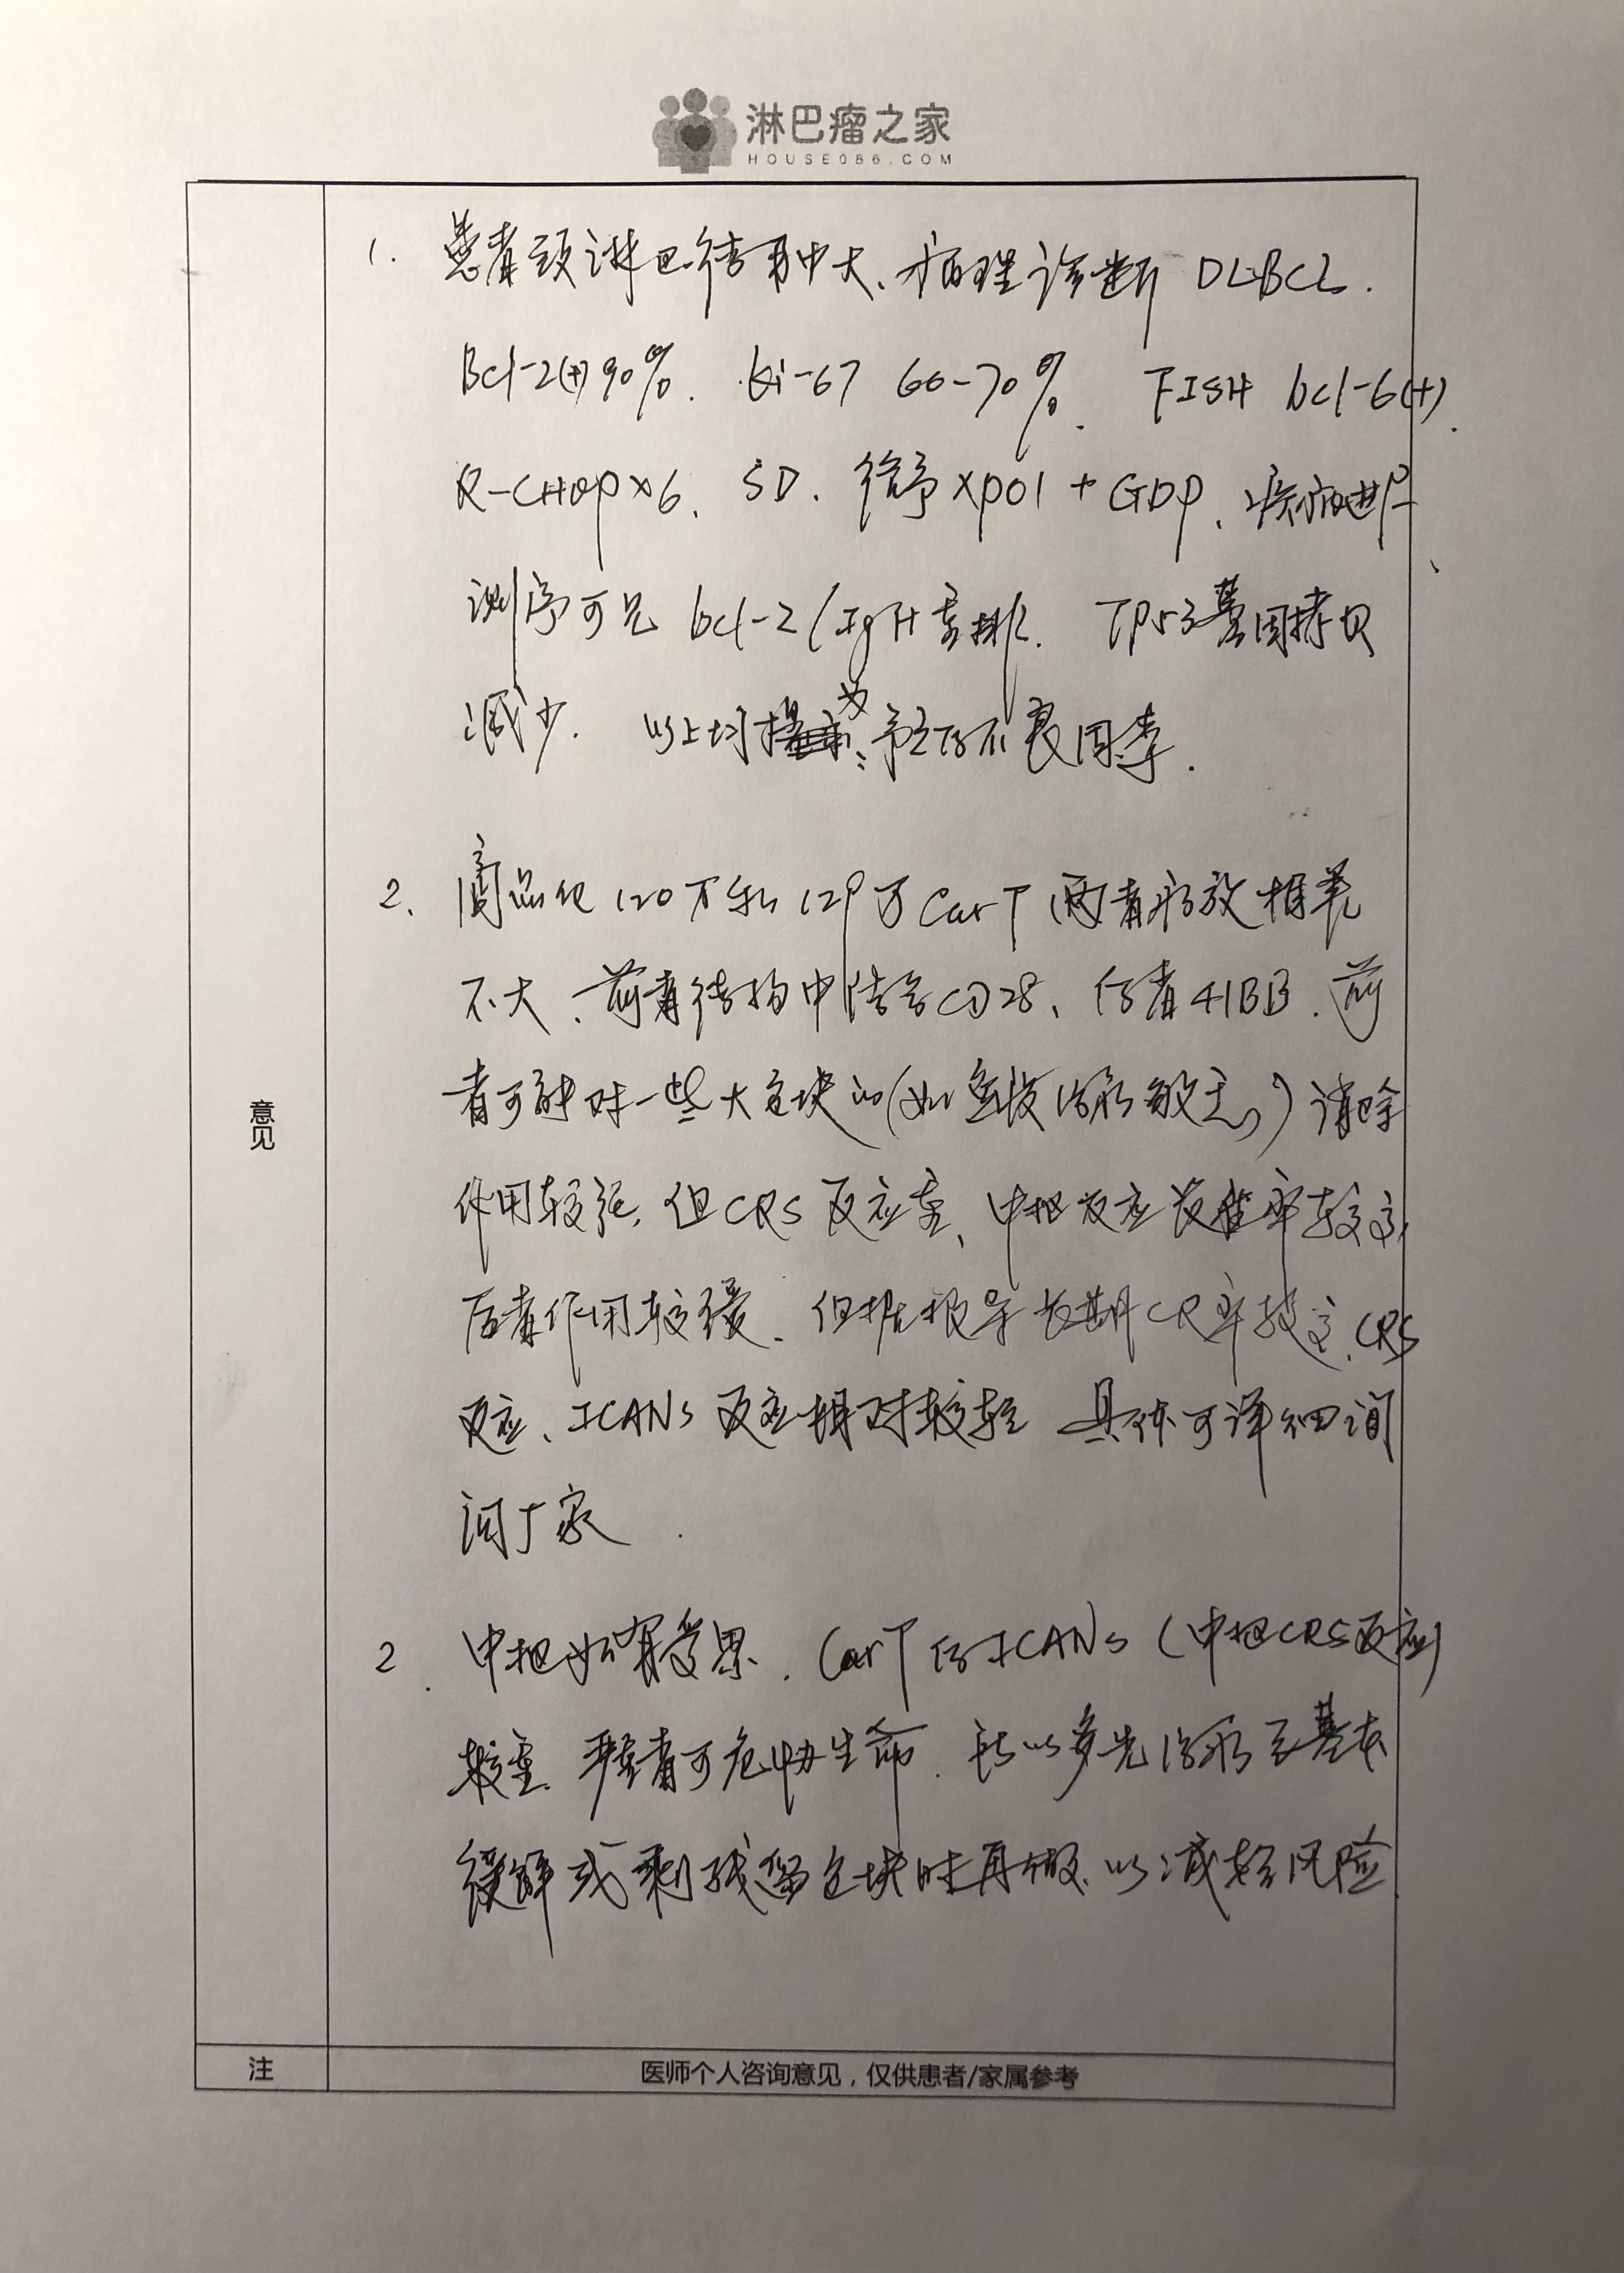 淋巴瘤之家
HOUSE086.COM
1. 患者颈淋巴结肿大、病理诊断 DLBCL.
Bcl-2(+)90%. ki-67 60-70%. FISH bcl-6(+).
R-CHOP×6. SD. 给予 XPO1 + GDP、疾病进
测序可见 bcl-2/IgH重排. TP53基因拷贝
减少. 以上均为预后不良因素.
2. 商品化 120万和 129万 CarT 两者疗效相差
不大、前者结构中结合CD28、后者41BB. 前
者可能对一些大包块的(如 治疗敏感)消除
作用较强, 但CRS反应重、中枢反应发生率较高,
后者作用较缓、但据报导长期CR率较高. CRS
反应、ICANs 反应相对较轻 具体可详细询
问厂家.
2. 中枢如有受累. CarT后ICANs(中枢CRS反应)
较重. 严重者可危协生命. 所以多先治疗至基本
缓解或剩残留包块时再做. 以减轻风险
意见
注 医师个人咨询意见，仅供患者/家属参考